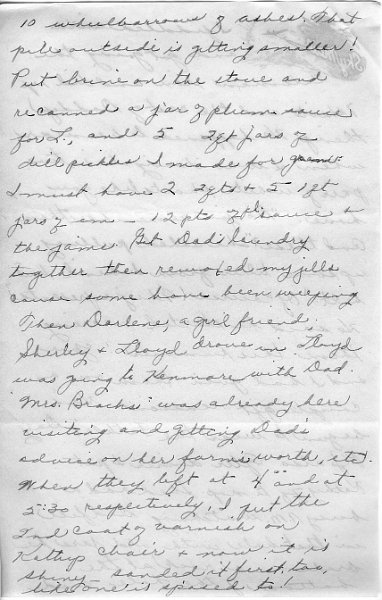 10 wheelbarrows of ashes. That
pile outside is getting smaller!
Put brine on the stove and
recanned a jar of plum sauce
for L., and 5 2qt jars of
dill pickles I made for
I must have 2 2qts & 5 1qt
jars of em - 12 pts of pl sauce &
the jams. Got Dad's laundry
together then rewaxed my jells
cause some have been weeping
Then Darlene, a girl friend,
Shirley & Lloyd drove in. Lloyd
was going to Kenmore with Dad.
"Mrs. Brooks" was already here
visiting and getting Dad's
advice on her farm's worth, etc.
When they left at 4 and at
5:30 respectively, I put the
2nd coat of varnish on
Kathy's chair & now it is
shiny - sanded it first, too,
like one is s'posed to!